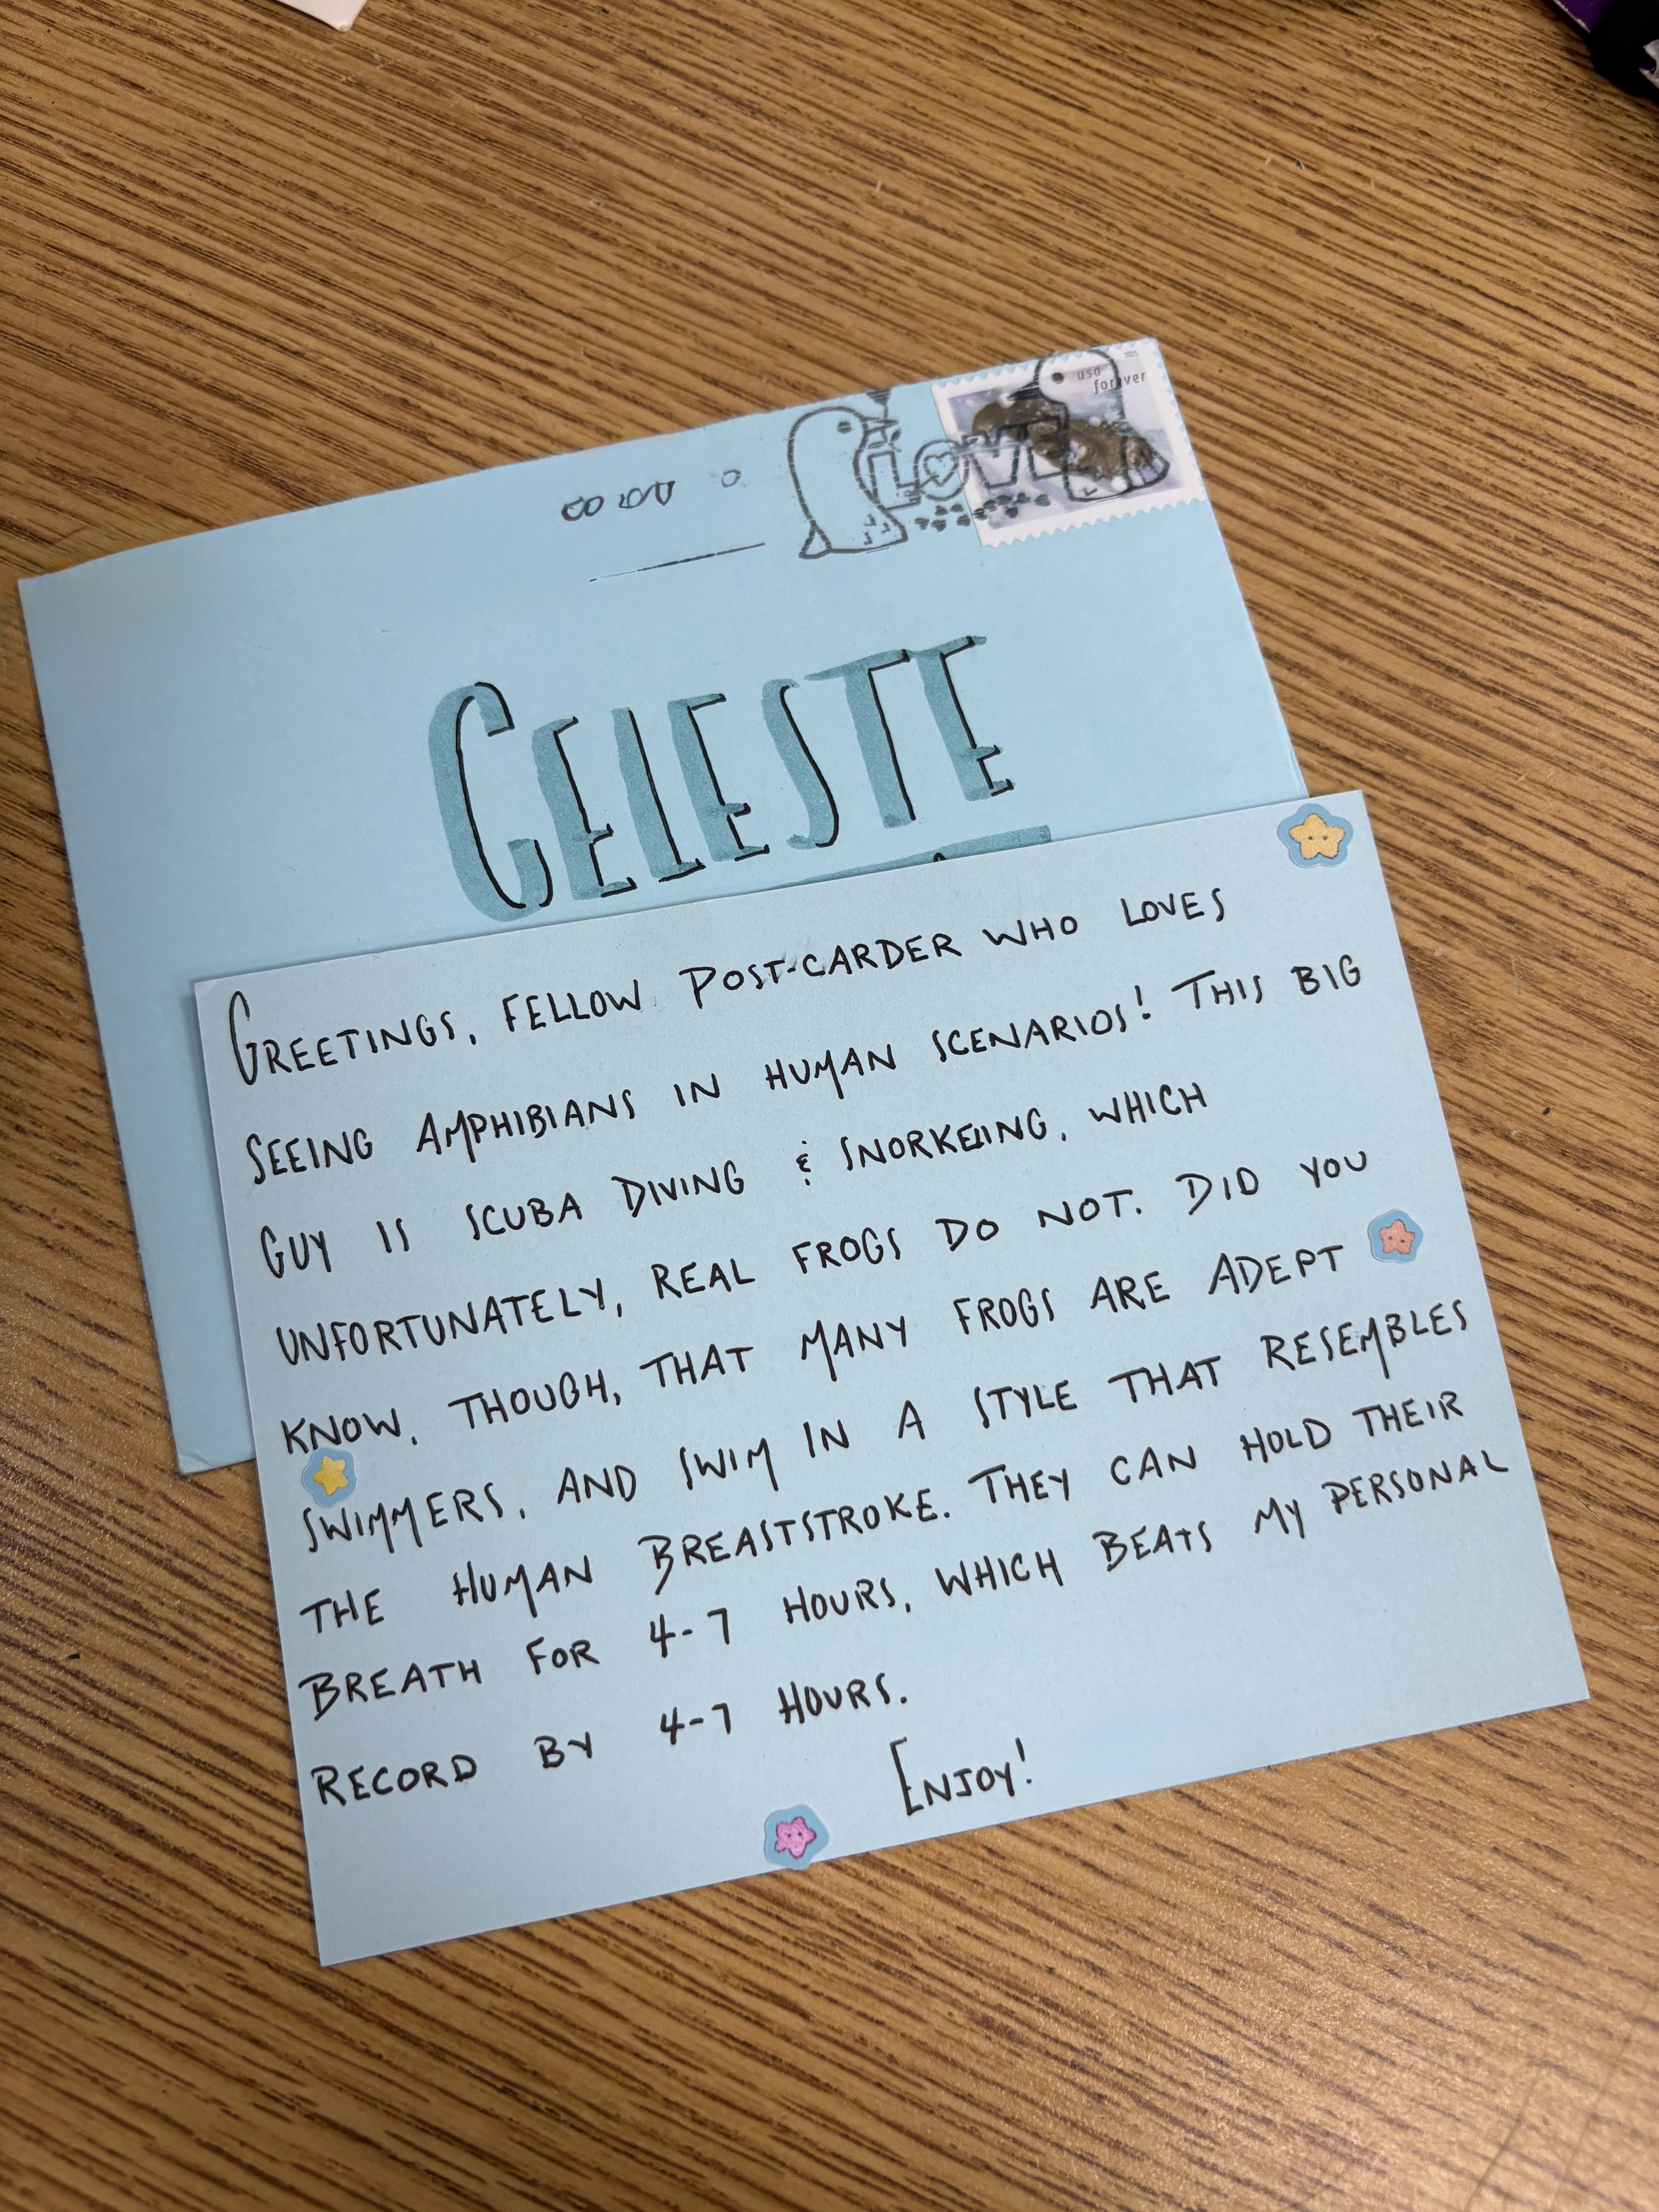 2023
usa
forever
LOVE
CELESTE
GREETINGS, FELLOW POST-CARDER WHO LOVES
SEEING AMPHIBIANS IN HUMAN SCENARIOS! THIS BIG
GUY IS SCUBA DIVING & SNORKELING, WHICH
UNFORTUNATELY, REAL FROGS DO NOT. DID YOU
KNOW, THOUGH, THAT MANY FROGS ARE ADEPT
SWIMMERS, AND SWIM IN A STYLE THAT RESEMBLES
THE HUMAN BREASTSTROKE. THEY CAN HOLD THEIR
BREATH FOR 4-7 HOURS, WHICH BEATS MY PERSONAL
RECORD BY 4-7 HOURS.
ENJOY!